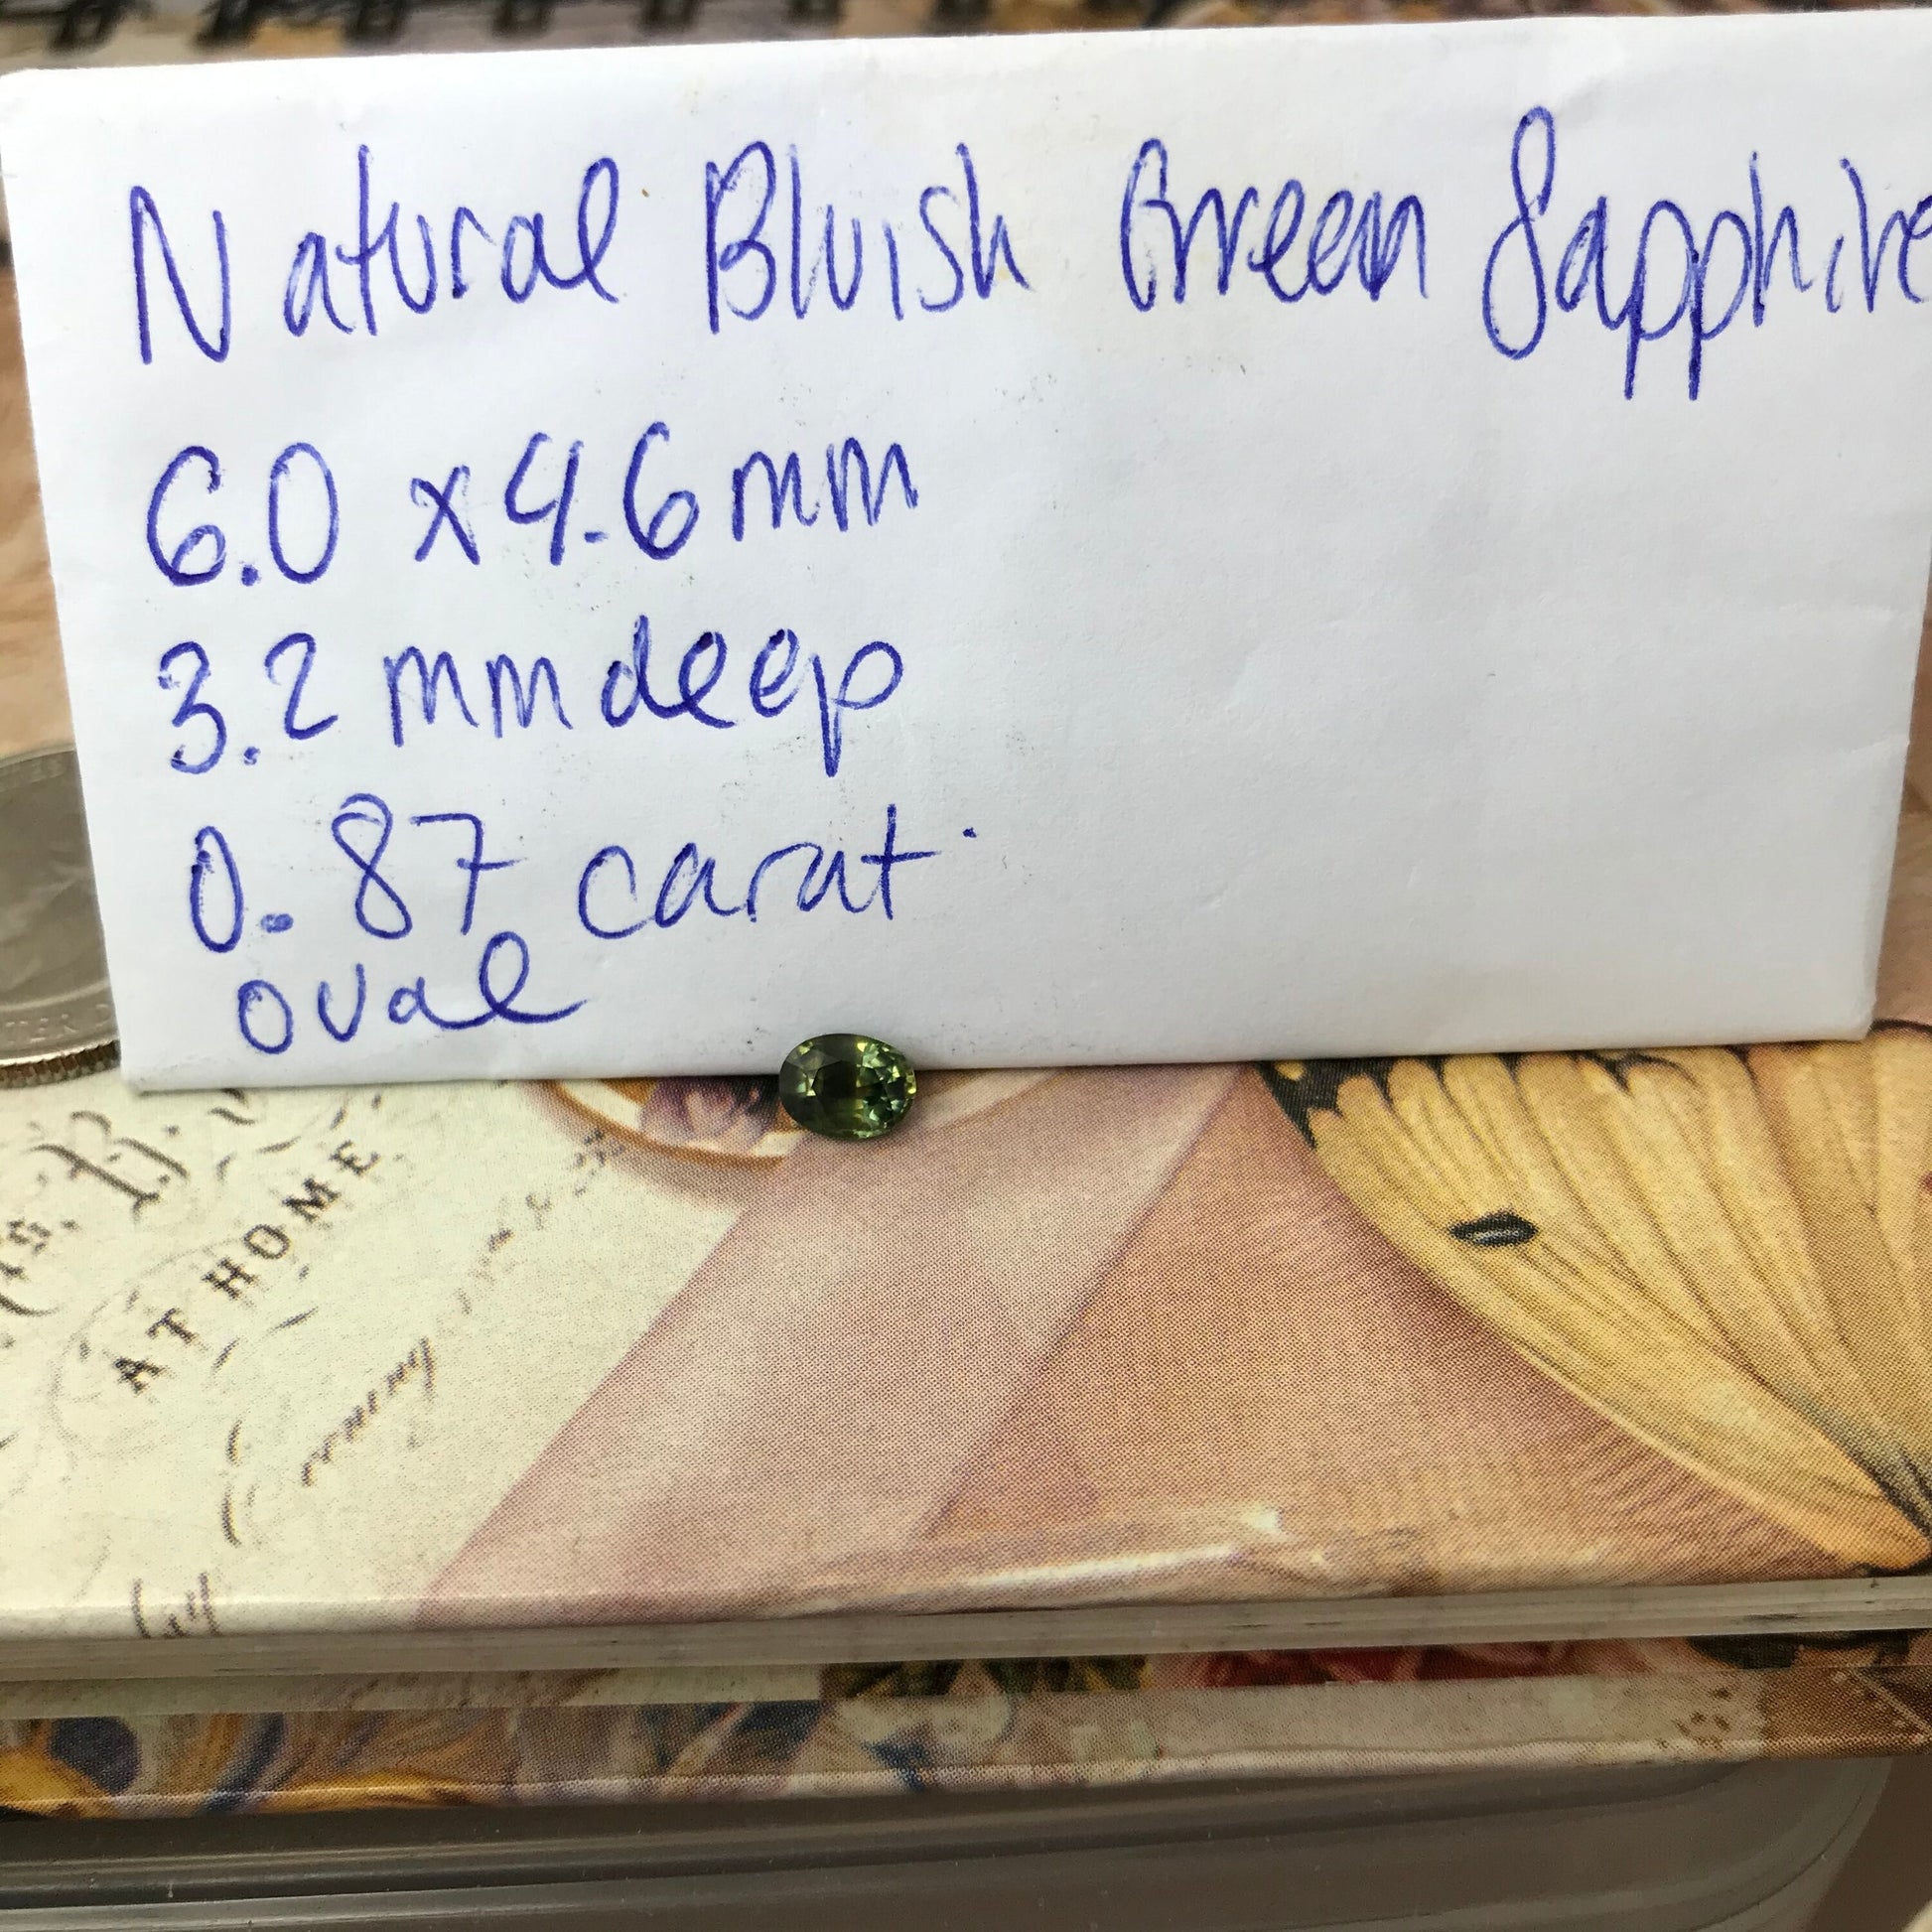 Natural Bluish Green Sapphire
6.0 x 4.6 mm
3.2 mm deep
0.87 carat
oval
AT HOME